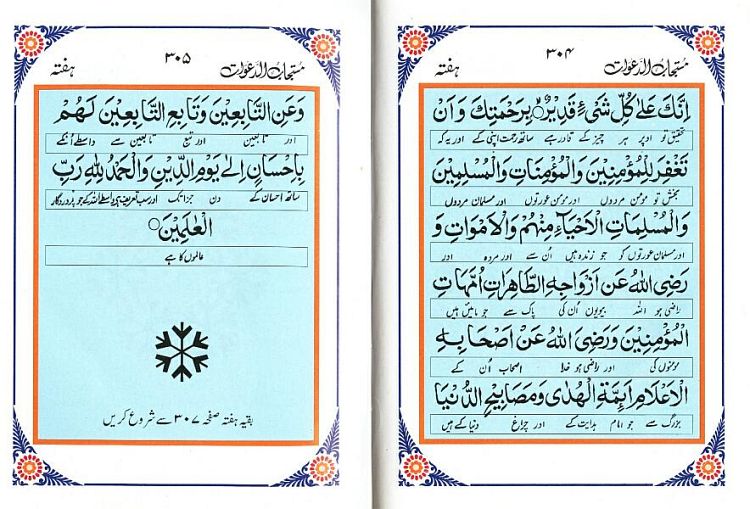 مستجاب الدعوات ۳۰۴ ہفتہ
اِنَّكَ عَلٰى كُلِّ شَیْءٍ قَدِیْرٌ بِرَحْمَتِكَ وَ اَنْ
تحقیق تو اوپر ہر چیز کے قادر ہے ساتھ رحمت اپنی کے اور یہ کہ
تَغْفِرَ لِلْمُؤْمِنِیْنَ وَالْمُؤْمِنَاتِ وَالْمُسْلِمِیْنَ
بخش تو مومن مردوں اور مومن عورتوں اور مسلمان مردوں
وَالْمُسْلِمَاتِ الْاَحْیَآءِ مِنْهُمْ وَالْاَمْوَاتِ وَ
اور مسلمان عورتوں کو جو زندہ ہیں اُن سے اور مردہ اور
رَضِیَ اللّٰهُ عَنْ اَزْوَاجِهِ الطَّاهِرَاتِ اُمَّهَاتِ
راضی ہو اللہ بیبیوں اُن کی پاک سے جو مائیں ہیں
الْمُؤْمِنِیْنَ وَرَضِیَ اللّٰهُ عَنْ اَصْحَابِهِ
مومنوں کی اور راضی ہو خدا اصحاب اُن کے
الْاَعْلَامِ اَئِمَّةِ الْهُدٰى وَمَصَابِیْحِ الدُّنْیَا
بزرگ سے جو امام ہدایت کے اور چراغ دنیا کے ہیں
مستجاب الدعوات ۳۰۵ ہفتہ
وَعَنِ التَّابِعِیْنَ وَتَابِعِ التَّابِعِیْنَ لَهُمْ
اور تابعین اور تبع تابعین سے واسطے اُنکے
بِاِحْسَانٍ اِلٰى یَوْمِ الدِّیْنِ وَالْحَمْدُ لِلّٰهِ رَبِّ
ساتھ احسان کے دن جزا تک اور سب تعریف ہی واسطے اللہ کے جو پروردگار
الْعٰلَمِیْنَ
عالموں کا ہے
بقیہ ہفتہ صفحہ ۳۰۷ سے شروع کریں